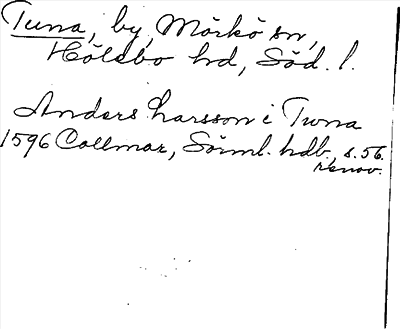 Tuna, by, Mörkö sn,
Hölebo hd, Söd. l.
Anders Larsson i Tuna
1596 Collmar, Sörml. hdb., s. 56.
renov.